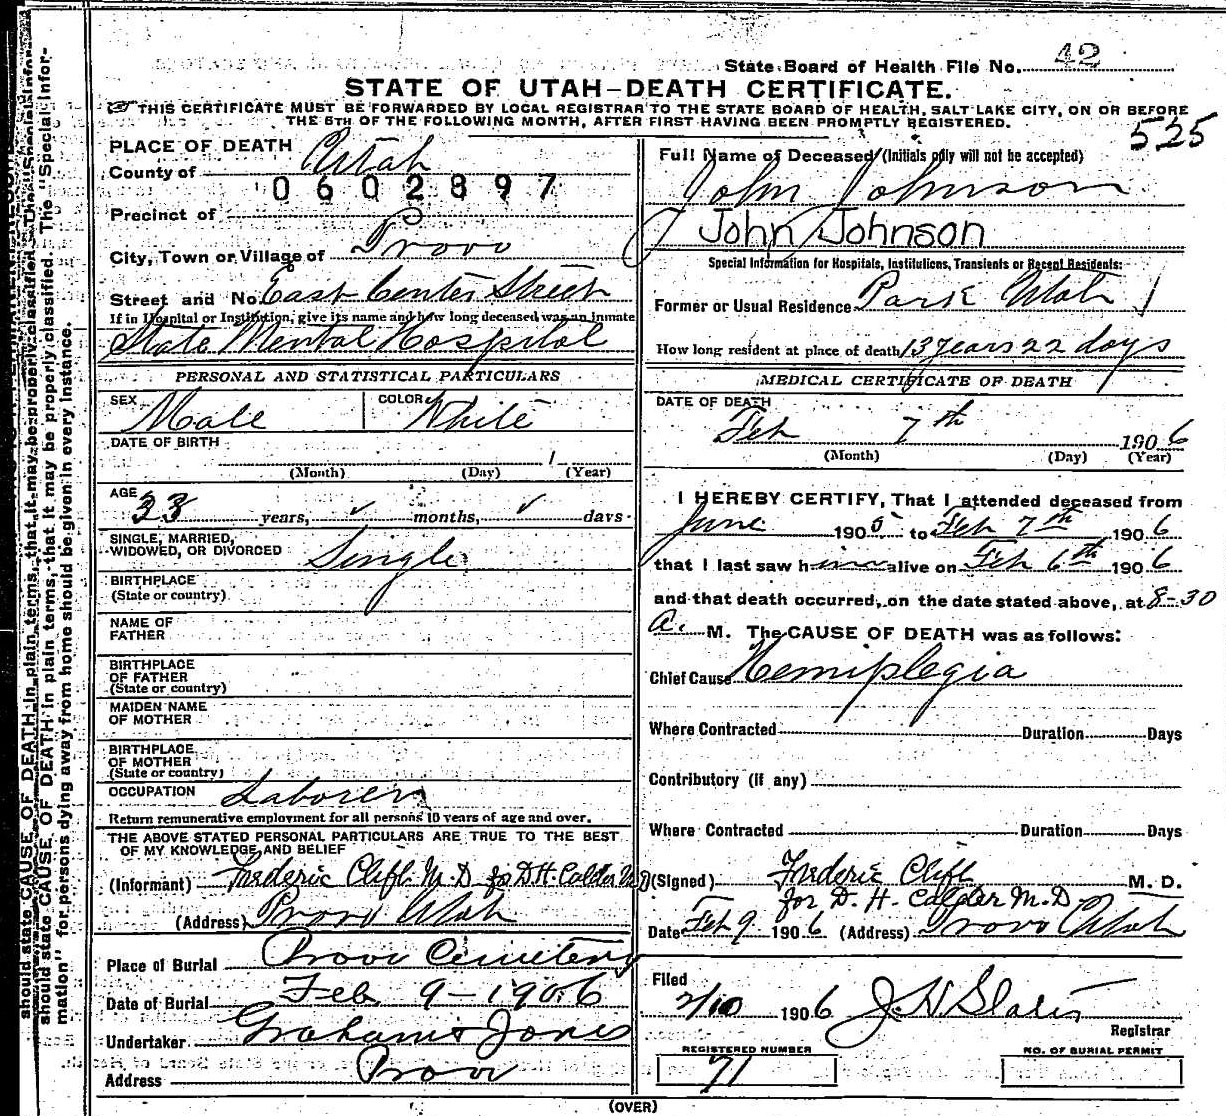 State Board of Health File No. 42
STATE OF UTAH—DEATH CERTIFICATE.
THIS CERTIFICATE MUST BE FORWARDED BY LOCAL REGISTRAR TO THE STATE BOARD OF HEALTH, SALT LAKE CITY, ON OR BEFORE
THE 5TH OF THE FOLLOWING MONTH, AFTER FIRST HAVING BEEN PROMPTLY REGISTERED.
525
PLACE OF DEATH
County of Utah
0602897
Precinct of
City, Town or Village of Provo
Street and No. East Center Street
If in Hospital or Institution, give its name and how long deceased was an inmate
State Mental Hospital
PERSONAL AND STATISTICAL PARTICULARS
SEX Male COLOR White
DATE OF BIRTH
(Month) (Day) 1 (Year)
AGE 33 years, months, days
SINGLE, MARRIED,
WIDOWED, OR DIVORCED Single
BIRTHPLACE
(State or country)
NAME OF
FATHER
BIRTHPLACE
OF FATHER
(State or country)
MAIDEN NAME
OF MOTHER
BIRTHPLACE
OF MOTHER
(State or country)
OCCUPATION Laborer
Return remunerative employment for all persons 10 years of age and over.
THE ABOVE STATED PERSONAL PARTICULARS ARE TRUE TO THE BEST
OF MY KNOWLEDGE AND BELIEF
(Informant) Frederic Clift M.D for D.H. Calder M.D
(Address) Provo Utah
Place of Burial Provo Cemetery
Date of Burial Feb 9-1906
Undertaker Graham & Jones
Address Provo
Full Name of Deceased (Initials only will not be accepted)
John Johnson
John Johnson
Special Information for Hospitals, Institutions, Transients or Recent Residents:
Former or Usual Residence Park Utah
How long resident at place of death 13 years 22 days
MEDICAL CERTIFICATE OF DEATH
DATE OF DEATH
Feb 7th 1906
(Month) (Day) (Year)
I HEREBY CERTIFY, That I attended deceased from
June 1905 to Feb 7th 1906
that I last saw him alive on Feb 6th 1906
and that death occurred, on the date stated above, at 8-30
a. M. The CAUSE OF DEATH was as follows:
Chief Cause Hemiplegia
Where Contracted Duration Days
Contributory (if any)
Where Contracted Duration Days
(Signed) Frederic Clift M. D.
for D. H. Calder M.D
Date Feb 9 1906 (Address) Provo Utah
Filed
2/10 1906 J. H. Slater
Registrar
REGISTERED NUMBER
71
NO. OF BURIAL PERMIT
(OVER)
should state CAUSE OF DEATH in plain terms, that it may be properly classified. The "Special Infor-
mation" for persons dying away from home should be given in every instance.